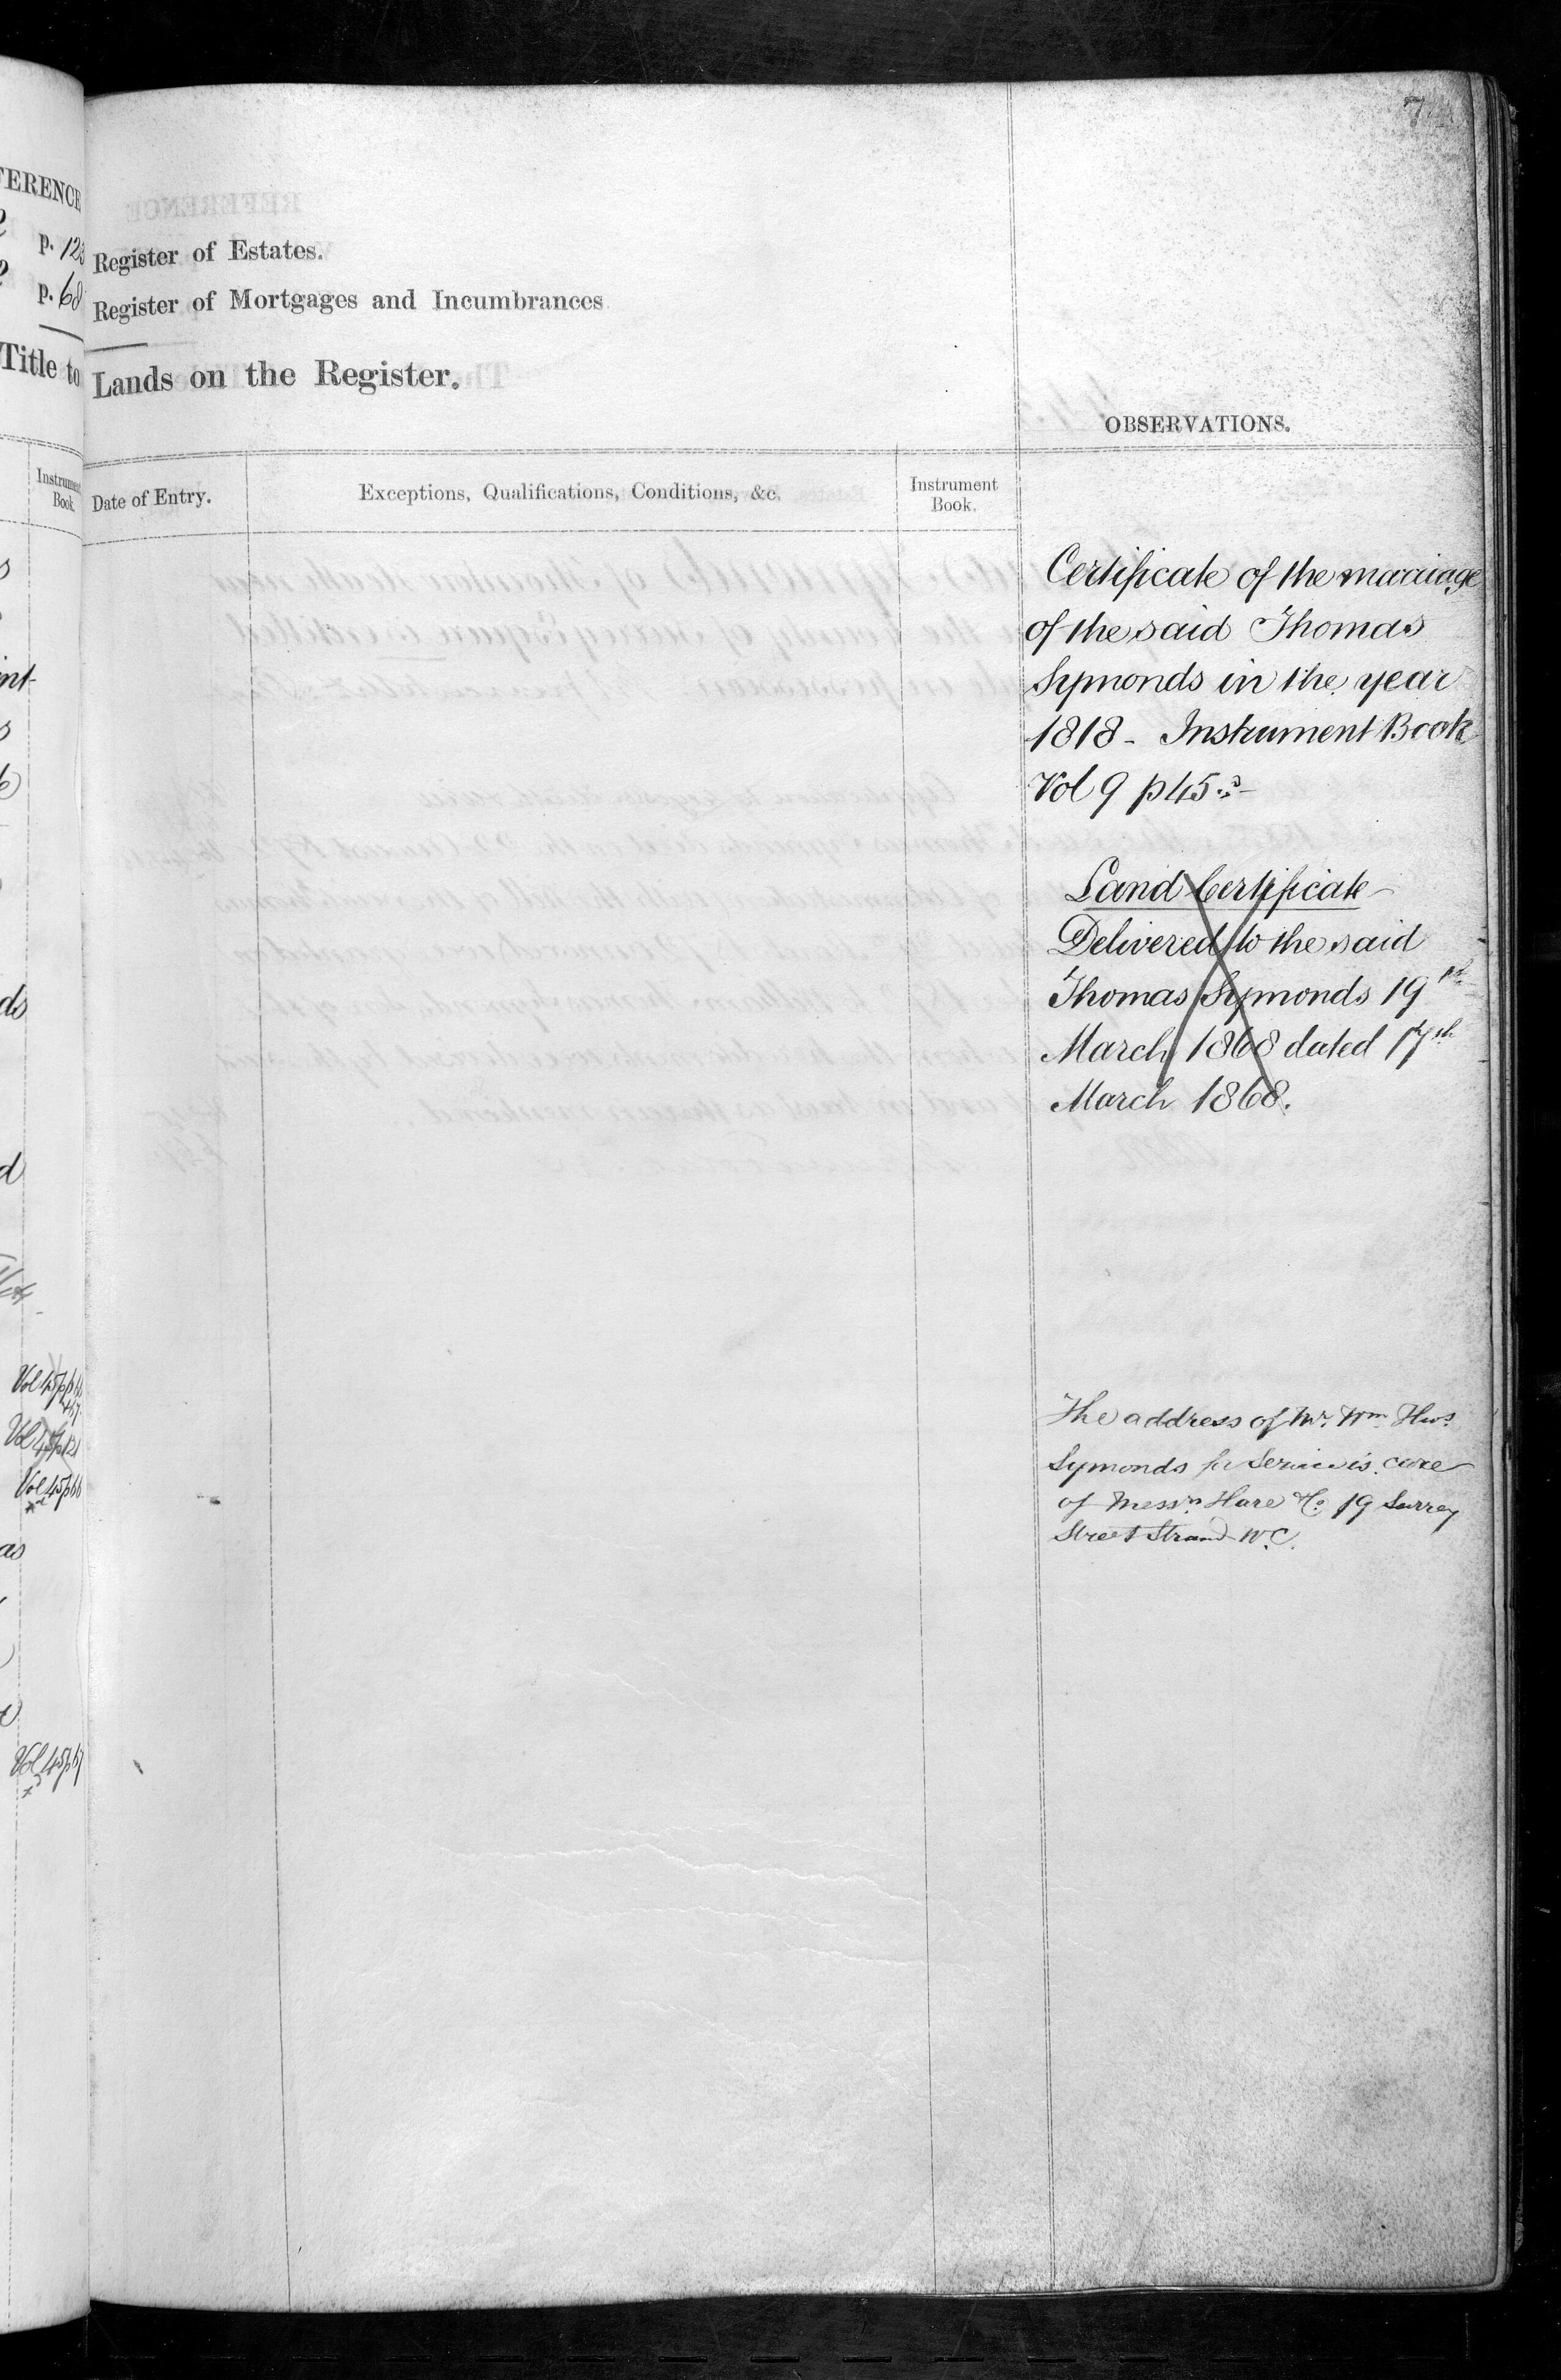 FERENCE
p. 123
p. 68
Title to
Instrument
Book.
ds
d
Vol 45 p
Vol 45 p 121
Vol 45 p 66
as
Vol 45 p 67
7
Register of Estates.
Register of Mortgages and Incumbrances
Lands on the Register.
OBSERVATIONS.
Date of Entry.
Exceptions, Qualifications, Conditions, &c.
Instrument
Book.
Certificate of the marriage
of the said Thomas
Symonds in the year
1818 - Instrument Book
Vol 9 p 45
Land Certificate
Delivered to the said
Thomas Symonds 19th
March 1868 dated 17th
March 1868.
The address of Mr. Wm. Thos.
Symonds for Service is care
of Messrs. Hare & Co 19 Surrey
Street Strand W.C.